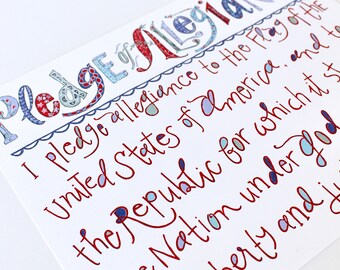 Pledge of Allegian
I pledge allegiance to the flag of the
United States of America and to
the Republic for which it st
Nation under God
berty and ju